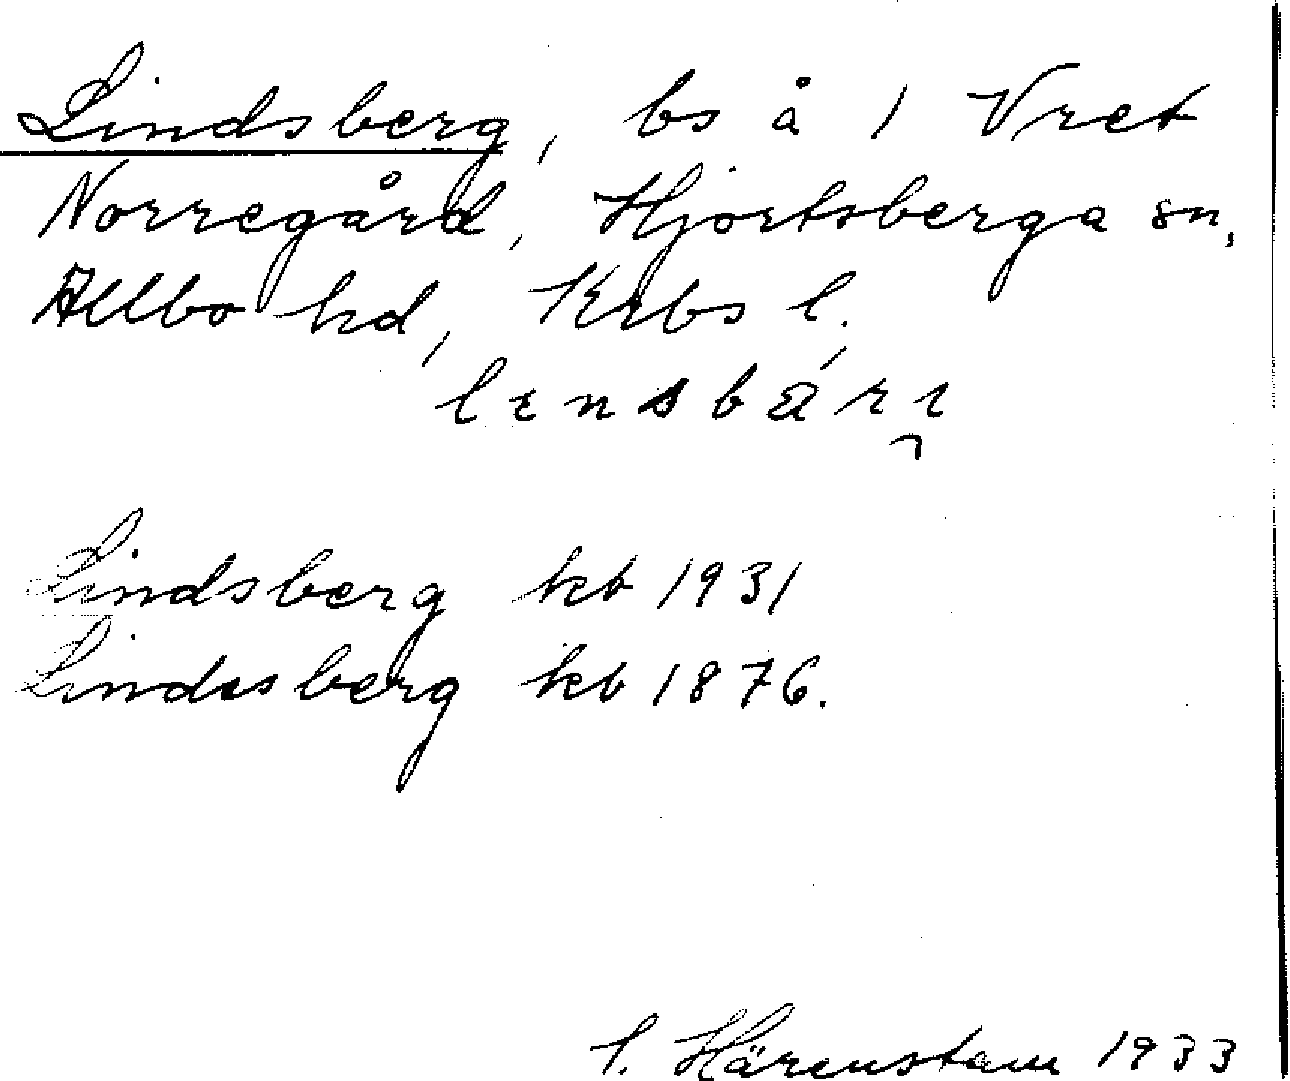 Lindsberg, bs å 1 Vret
Norregård, Hjortsberga sn,
Allbo hd, Krbs l.
Lindsberg kb 1931
Lindsberg kb 1876.
Härenstam 1933